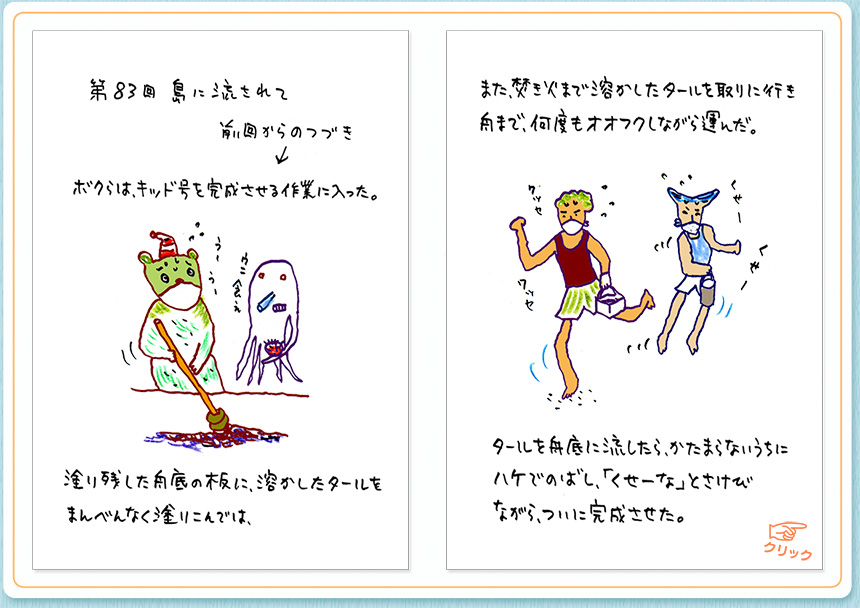 第83回 島に流されて
前回からのつづき
ボクらは、キッド号を完成させる作業に入った。
うー
うー
ウニ食え
塗り残した舟底の板に、溶かしたタールを
まんべんなく塗りこんでは、
また、焚き火まで溶かしたタールを取りに行き
舟まで、何度もオオフクしながら運んだ。
ワッセ
ワッセ
くせー
くせー
タールを舟底に流したら、かたまらないうちに
ハケでのばし、「くせーな」とさけび
ながら、ついに完成させた。
クリック